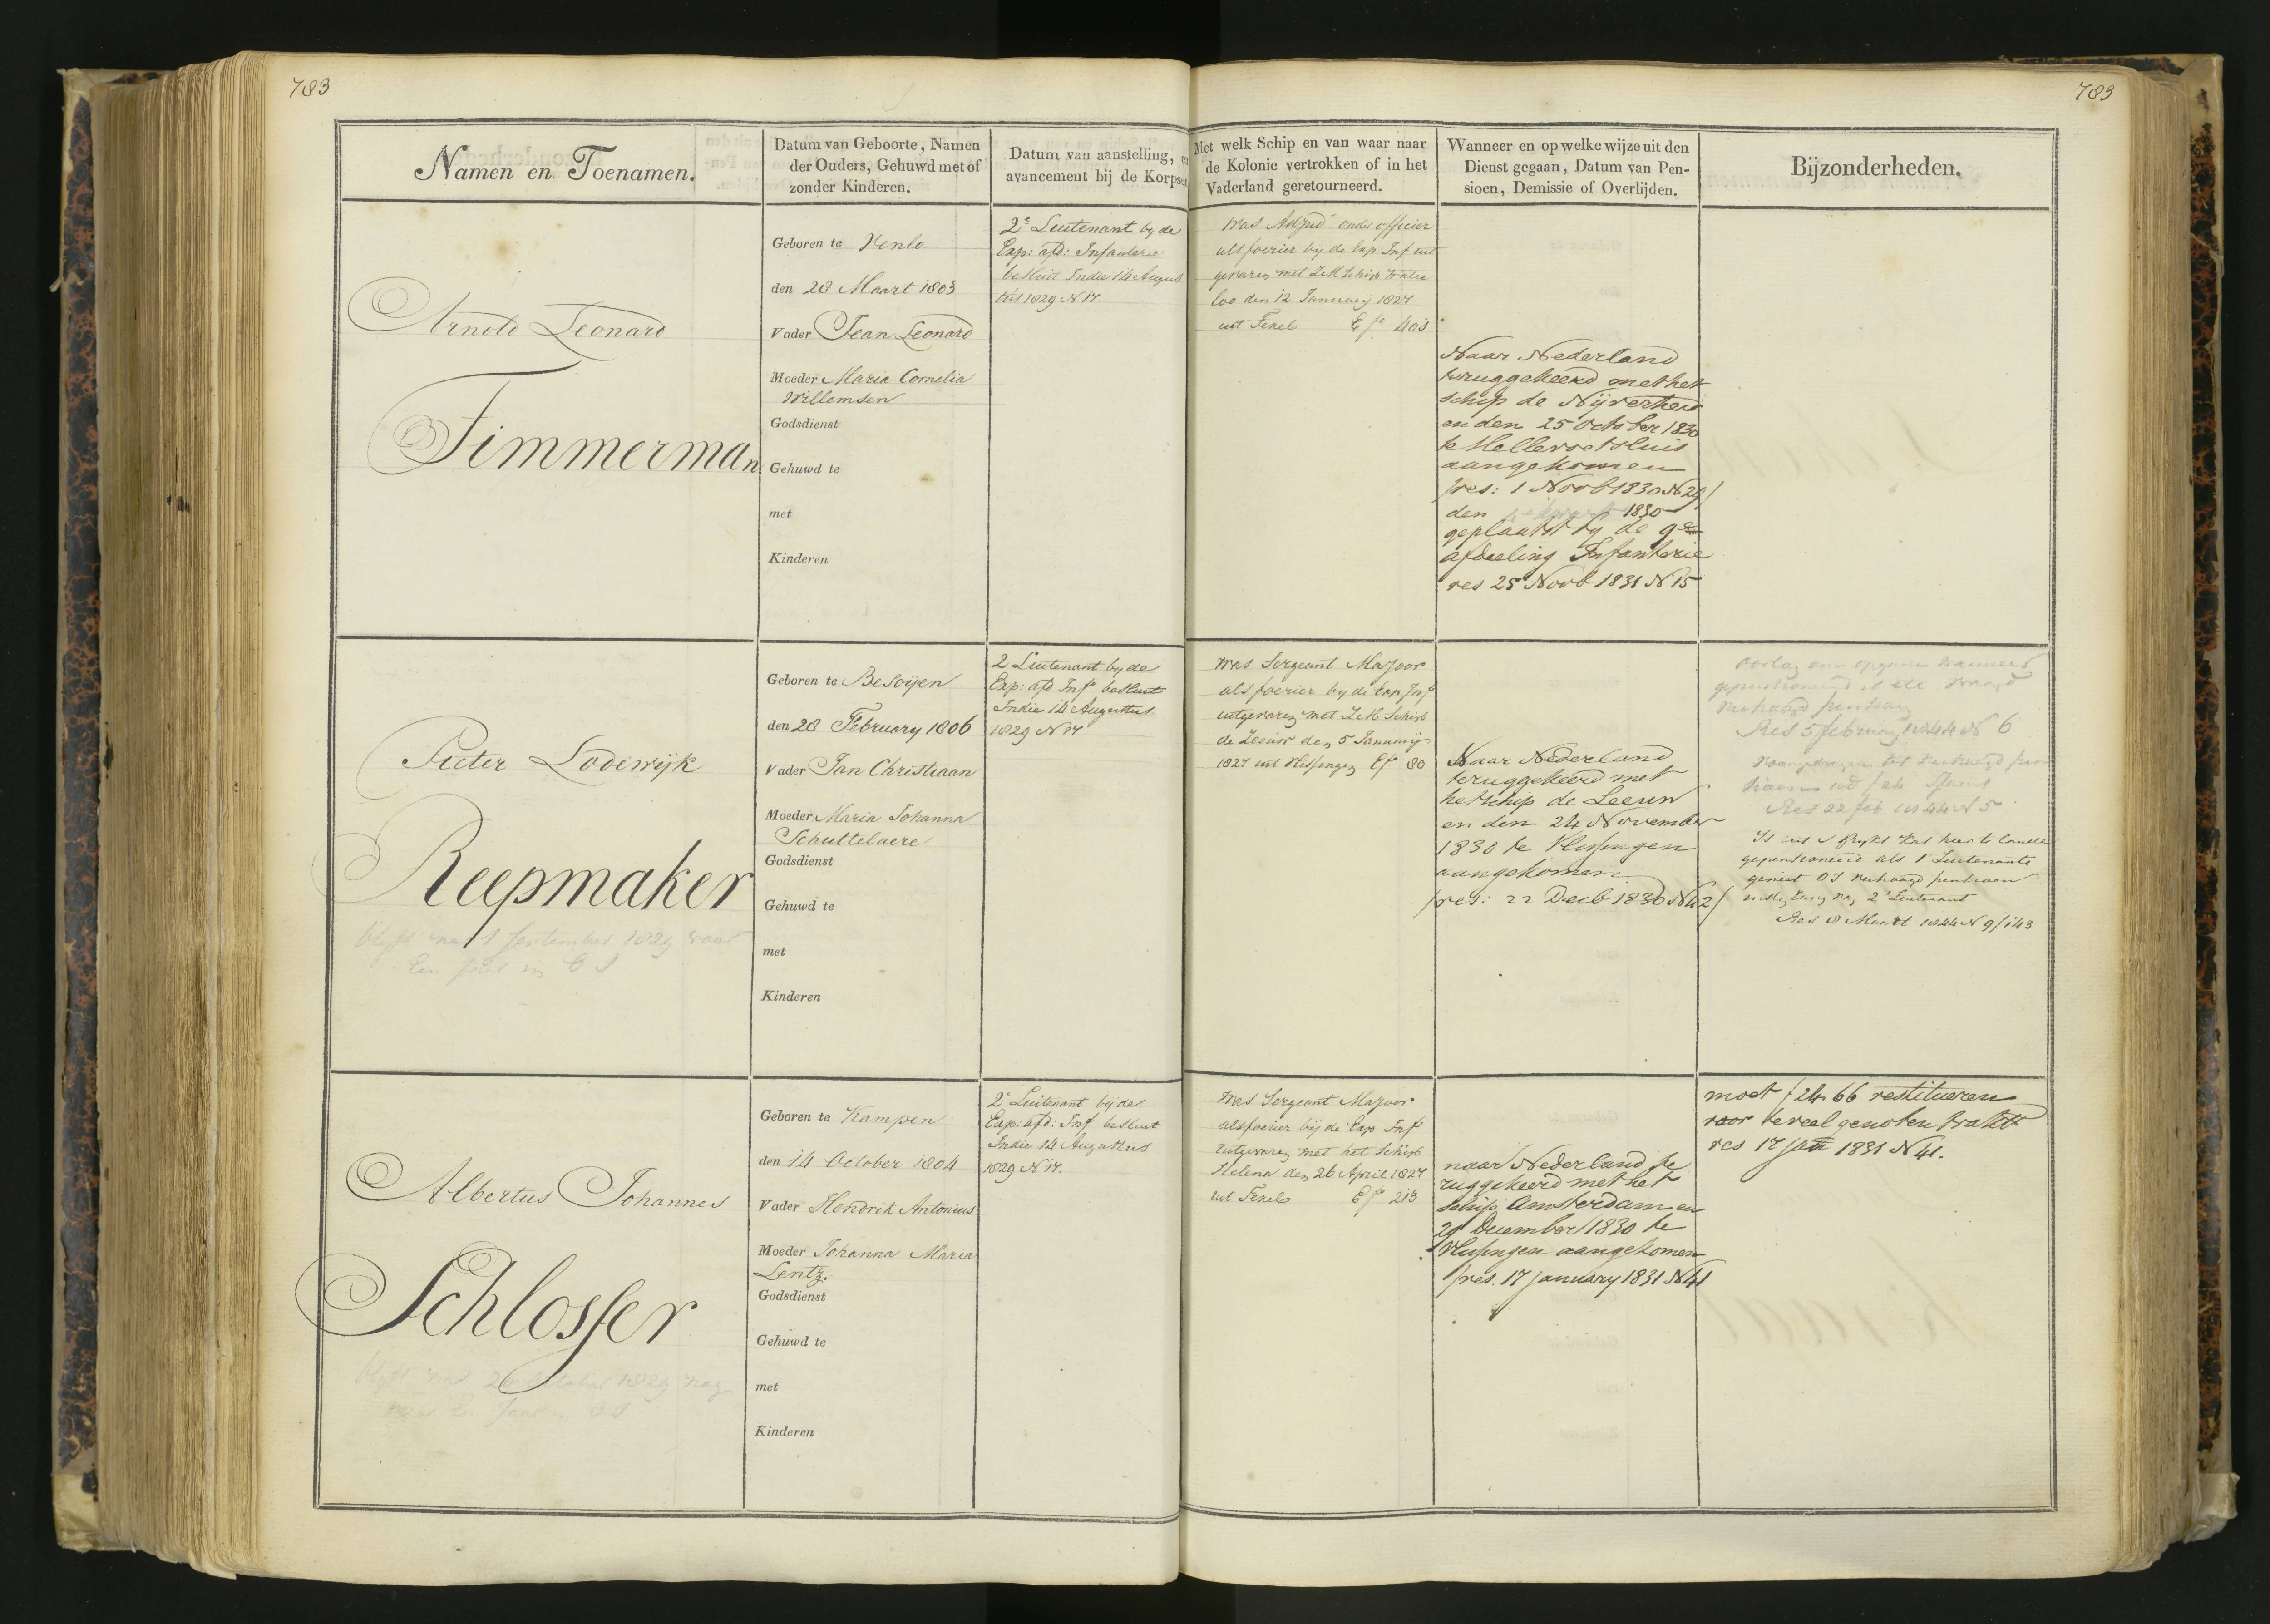 783
783
Namen en Toenamen.
Datum van Geboorte, Namen
der Ouders, Gehuwd met of
zonder Kinderen.
Datum van aanstelling, en
avancement bij de Korpsen
Met welk Schip en van waar naar
de Kolonie vertrokken of in het
Vaderland geretourneerd.
Wanneer en op welke wijze uit den
Dienst gegaan, Datum van Pen-
sioen, Demissie of Overlijden.
Bijzonderheden.
Arnold Leonard
Timmerman
Geboren te Venlo
den 28 Maart 1803
Vader Jean Leonard
Moeder Maria Cornelia
Willemsen
Godsdienst
Gehuwd te
met
Kinderen
2e Luitenant by de
Exp: afd: Infanterie
besluit Indie 14 Augus
tus 1829 N 17
was Adjud onder officier
als foerier bij de Exp Inf uit
gevaren met Z M Schip Water
loo den 12 January 1827
uit Texel Ef 403
Naar Nederland
teruggekeerd met het
schip de Nijverheid
en den 25 October 1830
te Hellevoetsluis
aangekomen
res: 1 Novb 1830 N 29
den 1830
geplaatst by de 9de
afdeeling Infanterie
res 25 Novb 1831 N 15
Pieter Lodewijk
Reepmaker
blyft na 1 September 1829 voor
Een jaar in O I
Geboren te Besoijen
den 28 February 1806
Vader Jan Christiaan
Moeder Maria Johanna
Schuttelaere
Godsdienst
Gehuwd te
met
Kinderen
2 Luitenant by de
Exp: afd Inf besluit
Indie 14 Augustus
1829 N 17
was Sergeant Majoor
als foerier by de Exp Inf
uitgevaren met Z M Schip
de Leeuw den 5 January
1827 uit Vlissingen Ef 80
Naar Nederland
teruggekeerd met
het schip de Leeuw
en den 24 November
1830 te Vlissingen
aangekomen
res: 22 Decb 1830 N 42
gepensioneerd
verhoogd pensioen
Res 5 february 1844 N 6
tot verhoogd pen
sioen
Res 22 feb 1844 N 5
Is uit s Ryks Kas hier te lande
gepensioneerd als 1e Luitenant
geniet O I verhoogd pensioen
2e Luitenant
Res 8 Maart 1844 N 9/143
Albertus Johannes
Schlosser
blyft 26 October 1829 nog
Geboren te Kampen
den 14 October 1804
Vader Hendrik Antonius
Moeder Johanna Maria
Lentz.
Godsdienst
Gehuwd te
met
Kinderen
2e Luitenant bij de
Exp: afd: Inf besluit
Indie 14 Augustus
1829 N 17.
was Sergeant Majoor
als foerier bij de Exp Inf
uitgevaren met het Schip
Helena den 26 April 1827
uit Texel Ef 213
naar Nederland te
ruggekeerd met het
schip Amsterdam en
29 December 1830 te
Vlissingen aangekomen
res. 17 January 1831 N 41
moet f 24.66 restitueren
voor te veel genoten traktt
res 17 jan 1831 N 41.